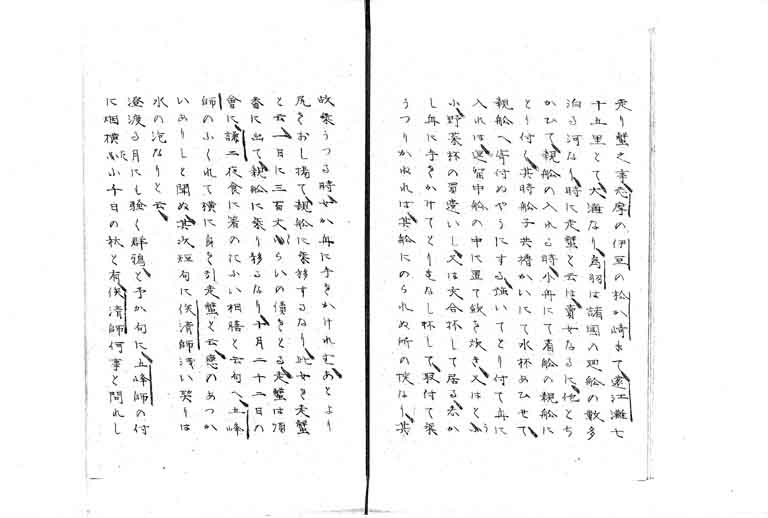 走り蟹之事志摩の伊豆の松か崎まて遠江灘七
十五里とて大海なり鳥羽は諸国の廻船の数多
泊る河なり時に走蟹と云は賣女なるに他とち
かひて親船の入れる時小舟にて着船の親船に
とり付く其時船子共櫓かいにて水杯あひせて
親船へ寄付ぬやうにする強いてとり付て舟に
入れは逗留中船の中に置て飯を炊き又はとふ
小野菜杯の買遣いし又は衣合杯して居る志か
し舟に手をかけてとりきなし杯して取付て乗
うつりかぬれは其船にのられぬ所の俣なり其
故乗うつる時女か舟に手をかけれむあとより
尻をおし揚て親船に乗移するなり此女を走蟹
と云一日に三百文くらいの債をとる走蟹は頂
香に出て親船に乗り移るなり十月二十二日の
會に謙二夜食に箸のにふい相膳と云句へ五峰
師のふくれて横に身を引走蟹と云恋のあつか
いありしと聞ぬ其次短句に俟清師浅い契りは
水の泡なりと云
澄渡る月にも騒く群鴉と予か句に五峰師の付
に畑横ふ小十日の秋と有俟清師何事と問れし